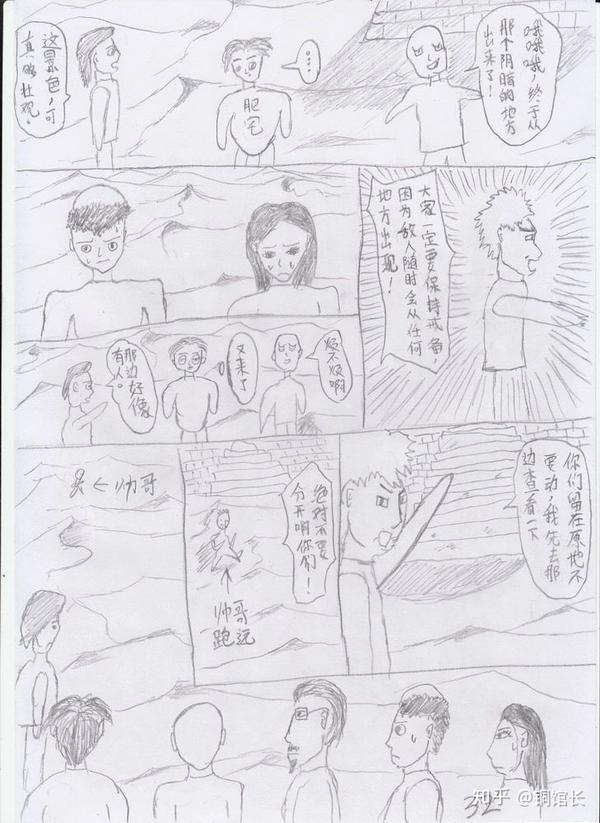 哦哦哦，终于从
那个阴暗的地方
出来了！
……
肥宅
这景色，可
真够壮观。
大家一定要保持戒备，
因为敌人随时会从任何
地方出现！
烦不烦啊
又来了
那边好像
有人。
你们留在原地不
要动，我先去那
边查看一下
绝对不要
分开啊你们！
↑
帅哥
跑远
←帅哥
32
知乎 @铜馆长